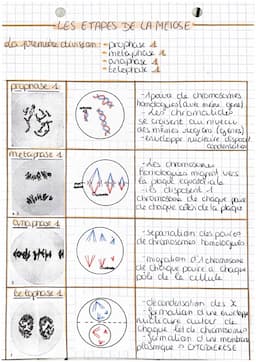 LES ETAPES DE LA MEIOSE
La première division : - prophase 1
- metaphase 1
- anaphase 1
- telephase 1
prophase 1
- 1 paire de chromosomes
homologues (avec même gène)
- Les chromatides
se croisent au niveau
des mêmes region (gènes)
- enveloppe nucleaire disparait
condensation
metaphase 1
- Les chromosomes
homologues migrent vers
la plaque equatoriale
- ils disposent 1
chromosome de chaque paire
de chaque coté de la plaque
anaphase 1
- separation des paires
de chromosomes homologues
- migration d'1 chromosome
de chaque paire à chaque
pole de la cellule
telophase 1
- decondensation des X
- formation d'une enveloppe
nucleaire autour de
chaque lot de chromosomes
- formation d'une membrane
plasmique → CYTODIERESE